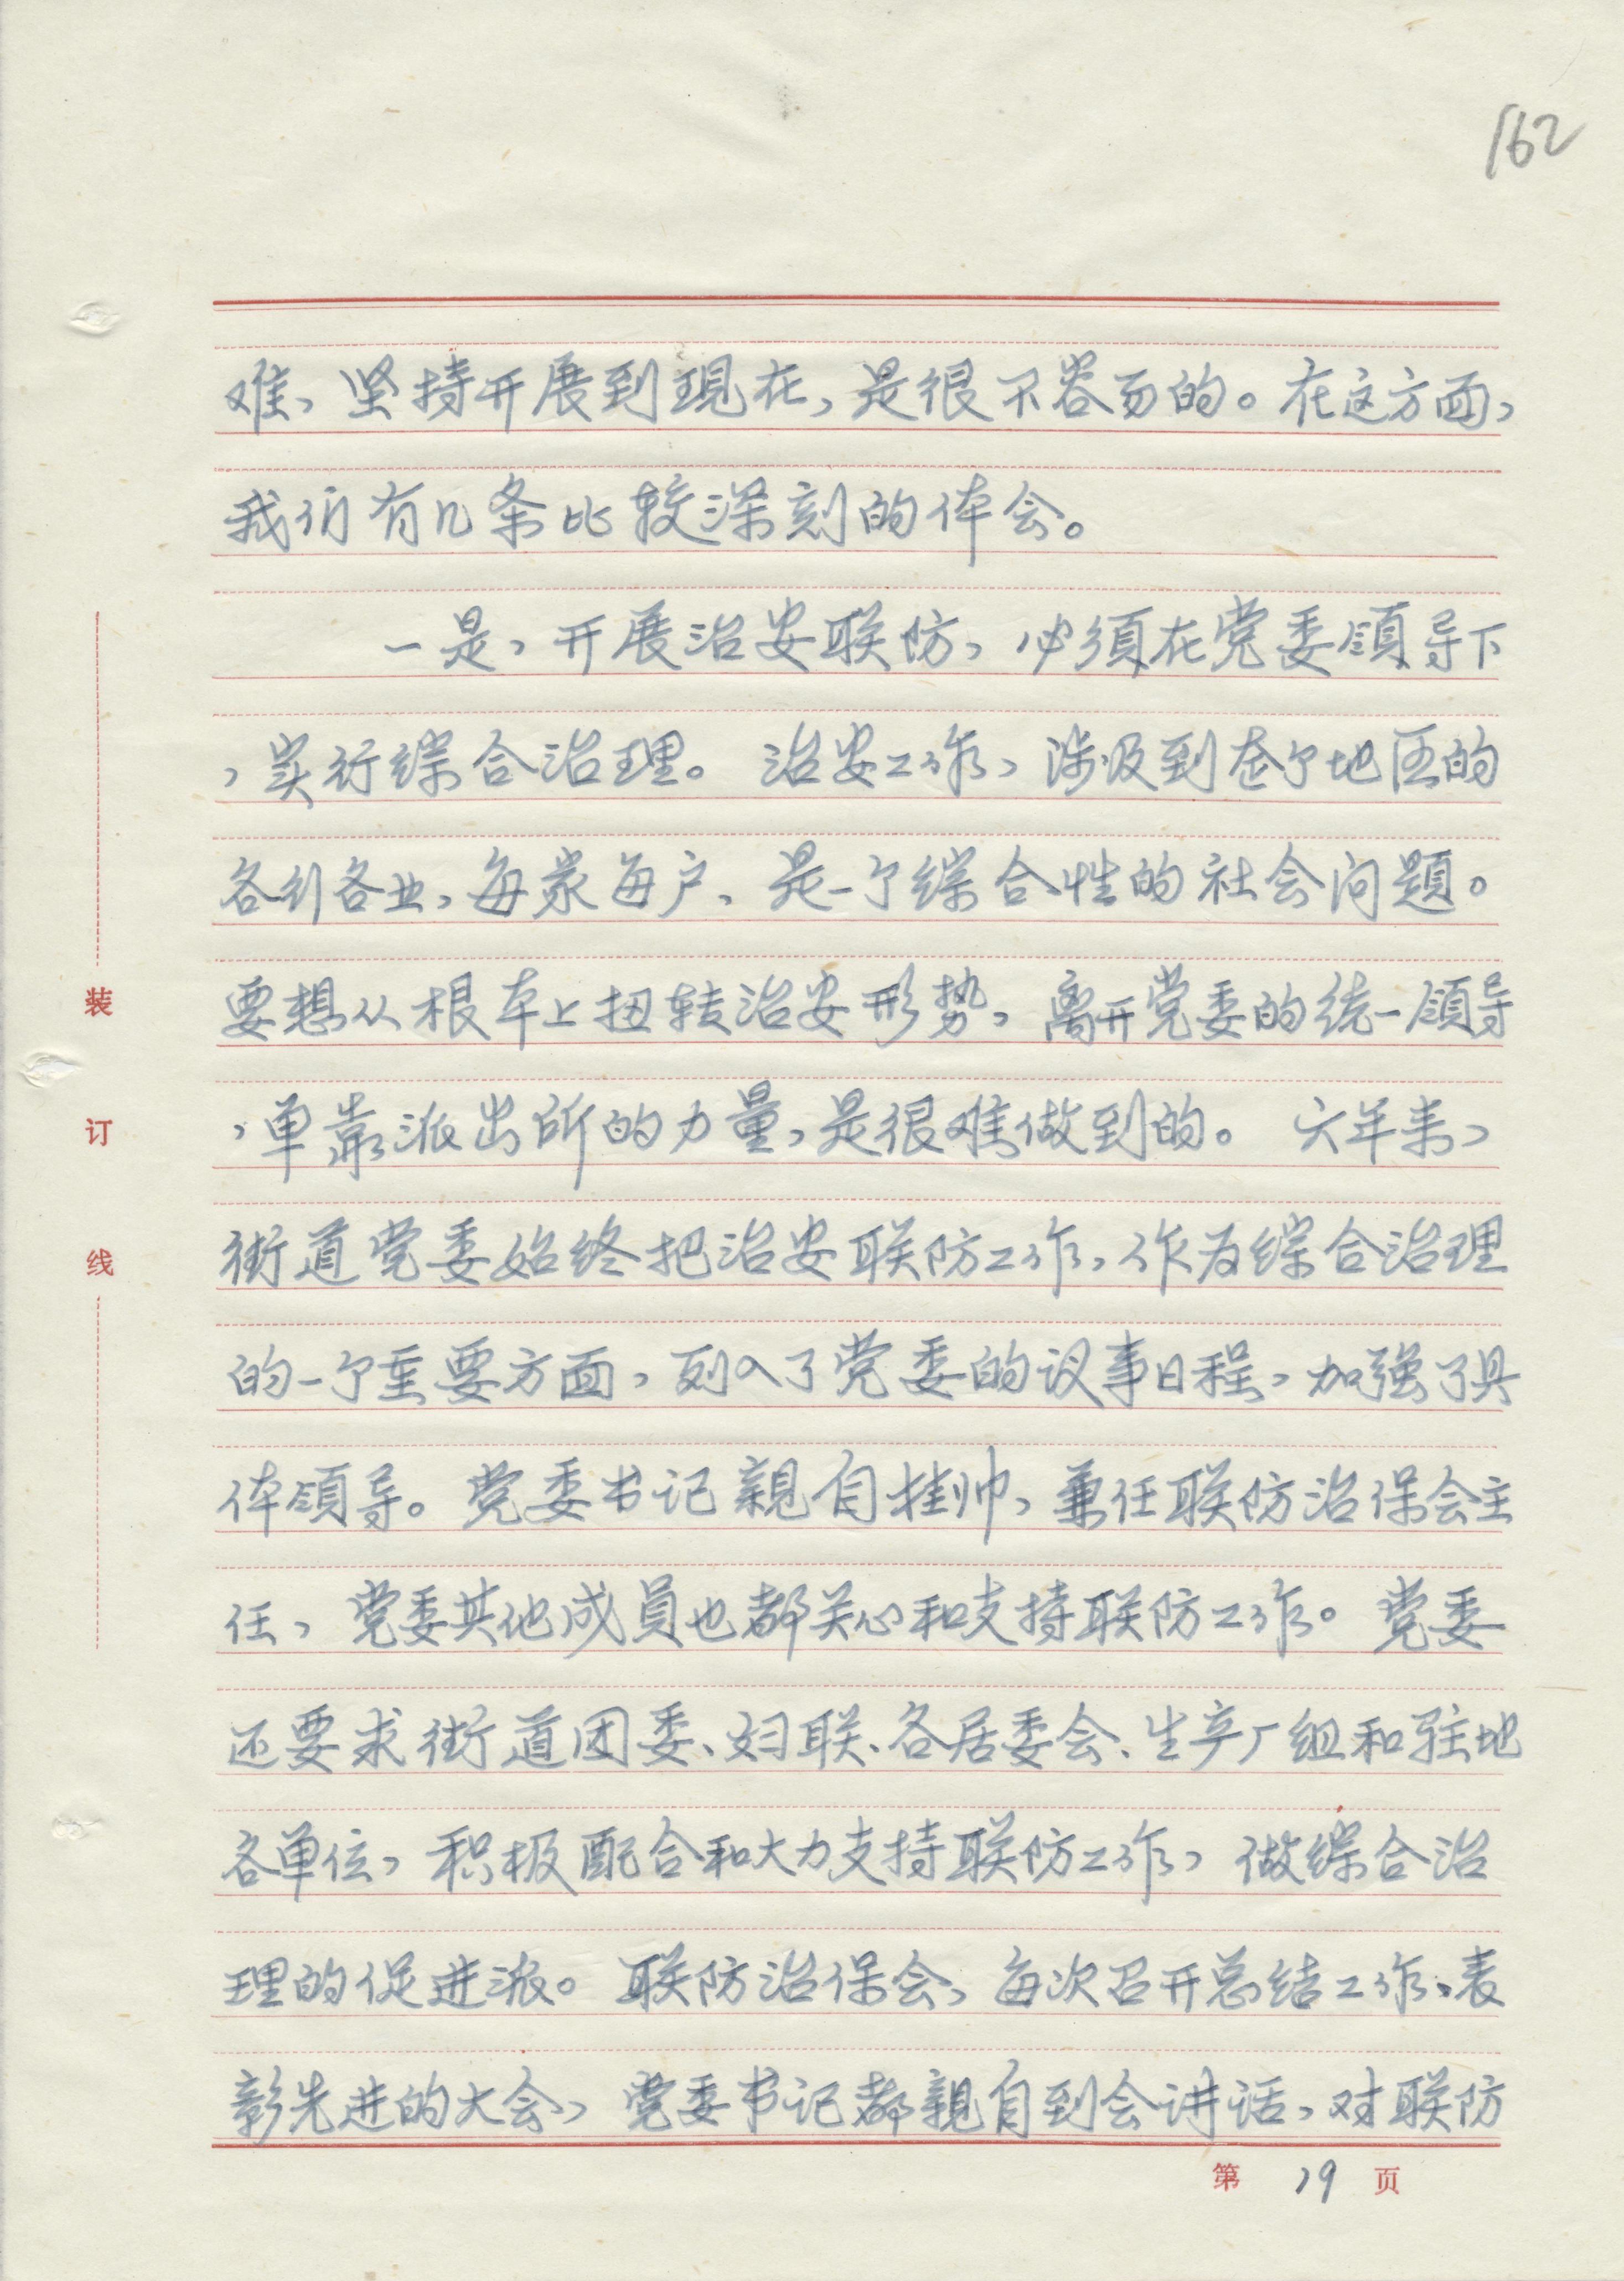 162
难，坚持开展到现在，是很不容易的。在这方面，
我们有几条比较深刻的体会。
一是，开展治安联防，必须在党委领导下
，实行综合治理。治安工作，涉及到整个地区的
各行各业，每家每户，是一个综合性的社会问题。
要想从根本上扭转治安形势，离开党委的统一领导
，单靠派出所的力量，是很难做到的。六年来，
街道党委始终把治安联防工作，作为综合治理
的一个重要方面，列入了党委的议事日程，加强了具
体领导。党委书记亲自挂帅，兼任联防治保会主
任，党委其他成员也都关心和支持联防工作。党委
还要求街道团委、妇联、各居委会、生产厂组和驻地
各单位，积极配合和大力支持联防工作，做综合治
理的促进派。联防治保会，每次召开总结工作、表
彰先进的大会，党委书记都亲自到会讲话，对联防
装
订
线
第 19 页